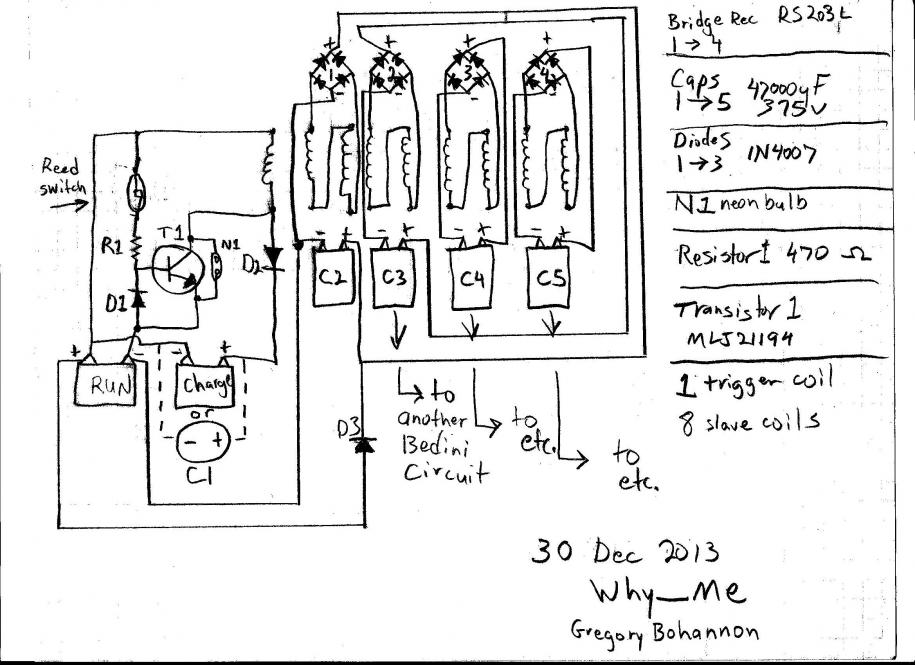 Bridge Rec RS203L
1 → 4
Caps 47000yF
1 → 5 375V
Diodes
1 → 3 1N4007
N1 neon bulb
Resistor 1 470 Ω
Transistor 1
MLJ21194
1 trigger coil
8 slave coils
+ + + +
1 2 3 4
- - - -
Reed
switch
R1 T1 N1
D2
D1
- + - + - + - +
C2 C3 C4 C5
+ - - +
RUN Charge
or
- +
C1
D3
to
another
Bedini
Circuit
to
etc.
to
etc.
30 Dec 2013
Why_Me
Gregory Bohannon